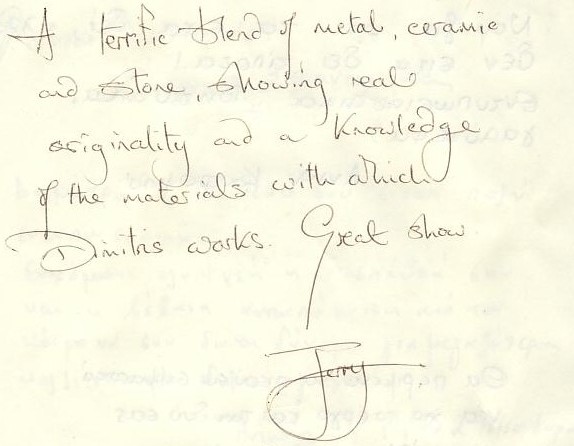 A terrific blend of metal, ceramic
and stone, showing real
originality and a knowledge
of the materials with which
Dimitris works. Great show.
Jerry